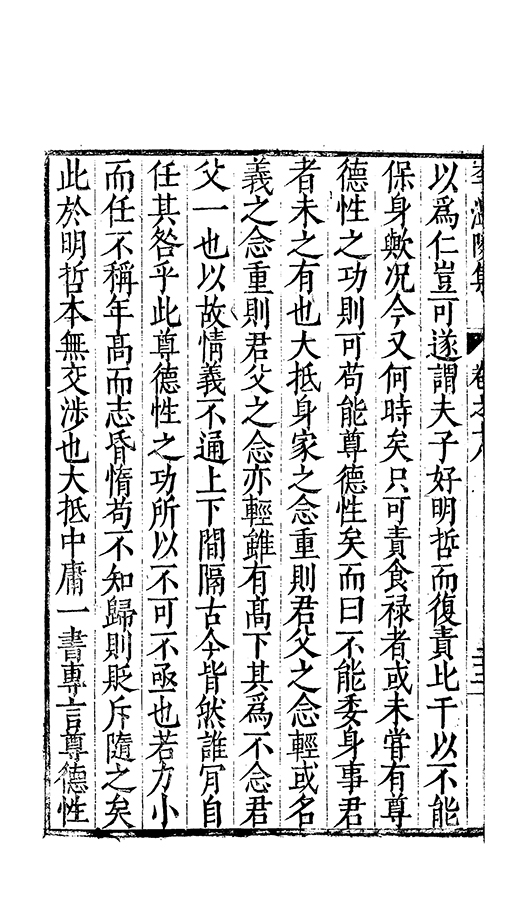 卷之十八
以為仁豈可遂謂夫子好明哲而復責比干以不能
保身歟况今又何時矣只可責食禄者或未嘗有尊
德性之功則可苟能尊德性矣而曰不能委身事君
者未之有也大抵身家之念重則君父之念輕或名
義之念重則君父之念亦輕雖有髙下其為不念君
父一也以故情義不通上下間隔古今皆然誰肎自
任其咎乎此尊德性之功所以不可不亟也若方小
而任不稱年髙而志昏惰苟不知歸則貶斥隨之矣
此於明哲本無交涉也大抵中庸一書專言尊德性